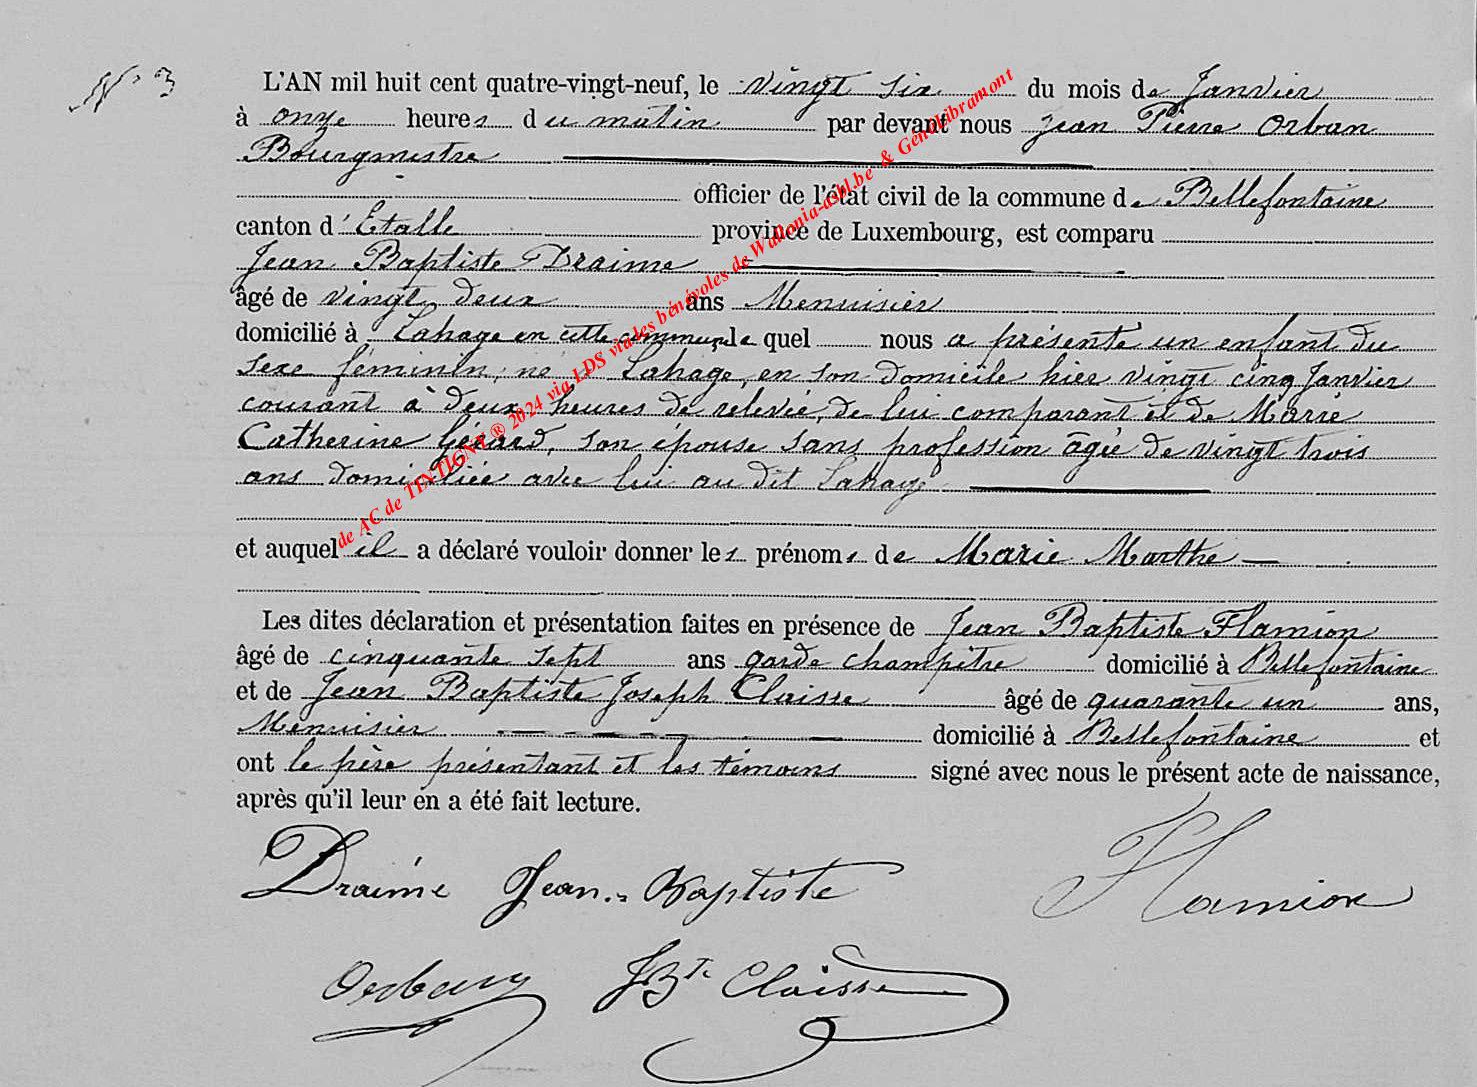 N° 3
L'AN mil huit cent quatre-vingt-neuf, le vingt six du mois de Janvier
à onze heures du matin par devant nous Jean Pierre Orban
Bourgmestre
officier de l'état civil de la commune de Bellefontaine
canton d'Etalle province de Luxembourg, est comparu
Jean Baptiste Draime
âgé de vingt deux ans Menuisier
domicilié à Lahage en cette commune le quel nous a présenté un enfant du
sexe féminin, né à Lahage, en son domicile hier vingt cinq Janvier
courant à deux heures de relevée, de lui comparant et de Marie
Catherine Gérard, son épouse sans profession âgée de vingt trois
ans domiciliée avec lui au dit Lahage
et auquel il a déclaré vouloir donner les prénoms de Marie Marthe
Les dites déclaration et présentation faites en présence de Jean Baptiste Flamion
âgé de cinquante sept ans garde champêtre domicilié à Bellefontaine
et de Jean Baptiste Joseph Claisse âgé de quarante un ans,
Menuisier domicilié à Bellefontaine et
ont le père présentant et les témoins signé avec nous le présent acte de naissance,
après qu'il leur en a été fait lecture.
Draime Jean-Baptiste Flamion
Orban JBte Claisse
de AC de TINTIGNY ® 2024 via LDS via les bénévoles de Wallonia-asbl.be & Génélibramont